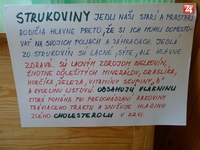 STRUKOVINY JEDLI NAŠI STARÍ A PRASTARÍ
RODIČIA HLAVNE PRETO, ŽE SI ICH MOHLI DOPESTO-
VAŤ NA SVOJICH POLIACH A ZÁHRADÁCH. JEDLA
ZO STRUKOVÍN SÚ LACNÉ, SÝTE, ALE HLAVNE
ZDRAVÉ. SÚ LACNÝM ZDROJOM BIELKOVÍN,
ŽIVOTNE DÔLEŽITÝCH MINERÁLOV, DRASLÍKA,
HORČÍKA, ŽELEZA, VITAMÍNY SKUPINY „B"
A KYSELINU LISTOVÚ. OBSAHUJÚ VLÁKNINU
KTORÁ POMÁHA PRI PREDCHÁDZANÍ RAKOVINY
TRÁVIACEHO TRAKTU A ZNIŽUJE HLADINU
ZLÉHO CHOLESTEROLU V KRVI.